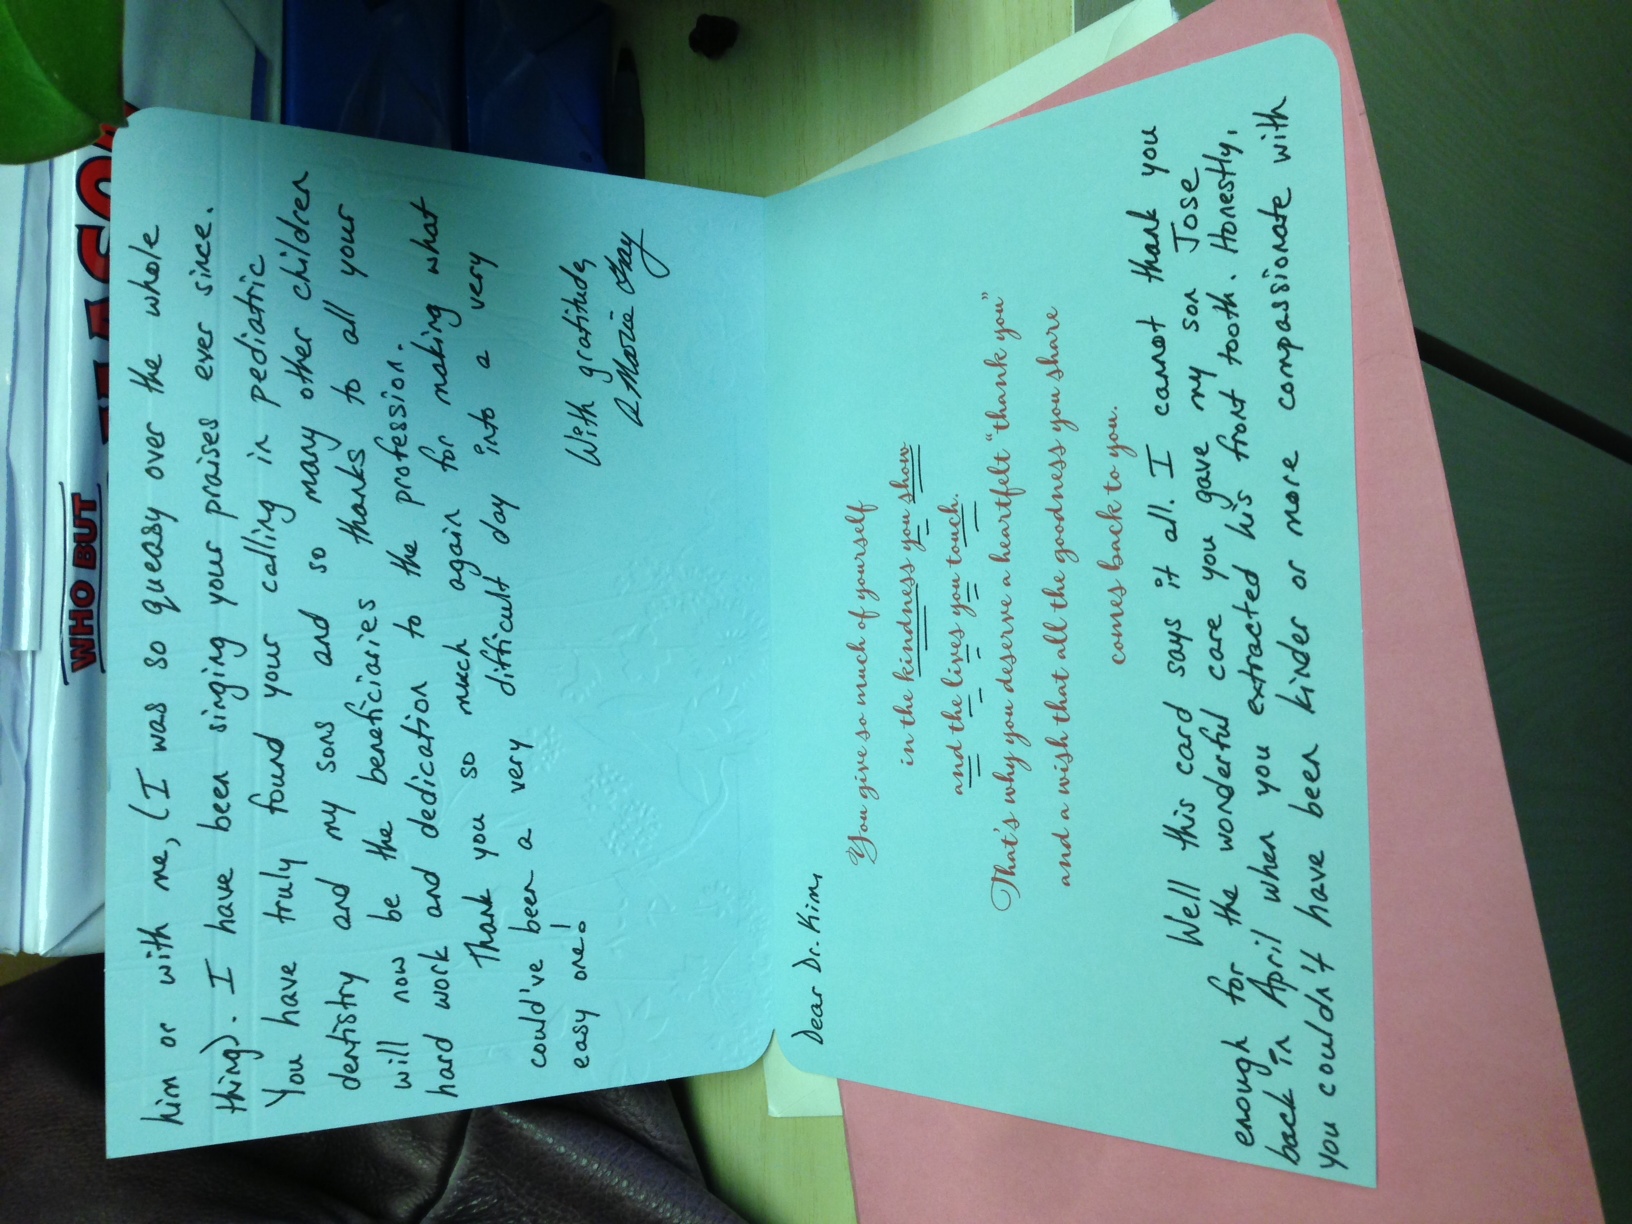 Dear Dr. Kim,
You give so much of yourself
in the kindness you show
and the lives you touch.
That's why you deserve a heartfelt "thank you"
and a wish that all the goodness you share
comes back to you.
Well this card says it all. I cannot thank you
enough for the wonderful care you gave my son Jose
back in April when you extracted his front tooth. Honestly,
you couldn't have been kinder or more compassionate with
him or with me, (I was so queasy over the whole
thing). I have been singing your praises ever since.
You have truly found your calling in pediatric
dentistry and my sons and so many other children
will now be the beneficiaries thanks to all your
hard work and dedication to the profession.
Thank you so much again for making what
could've been a very difficult day into a very
easy one!
With gratitude,
Marie
WHO BUT